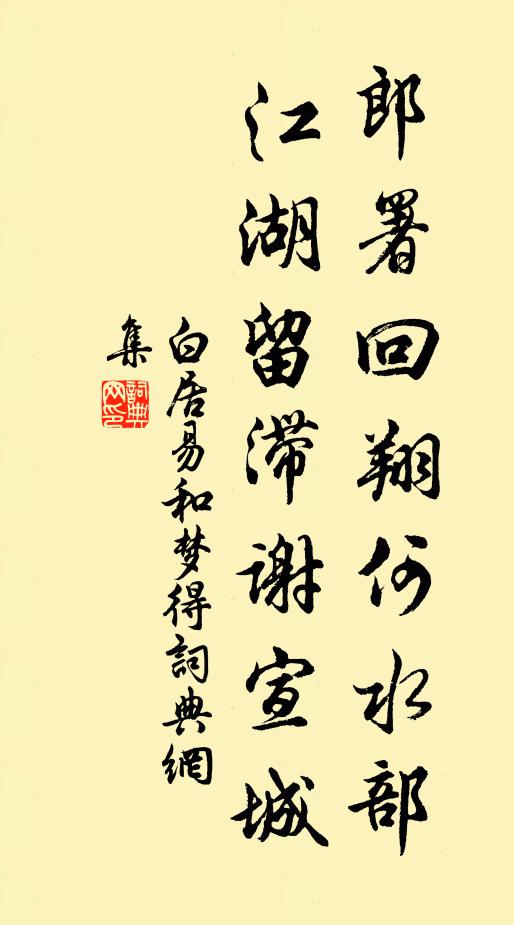 郎署回翔何水部
江湖留滞謝宣城
白居易和梦得詞典網
集
詞典
网印